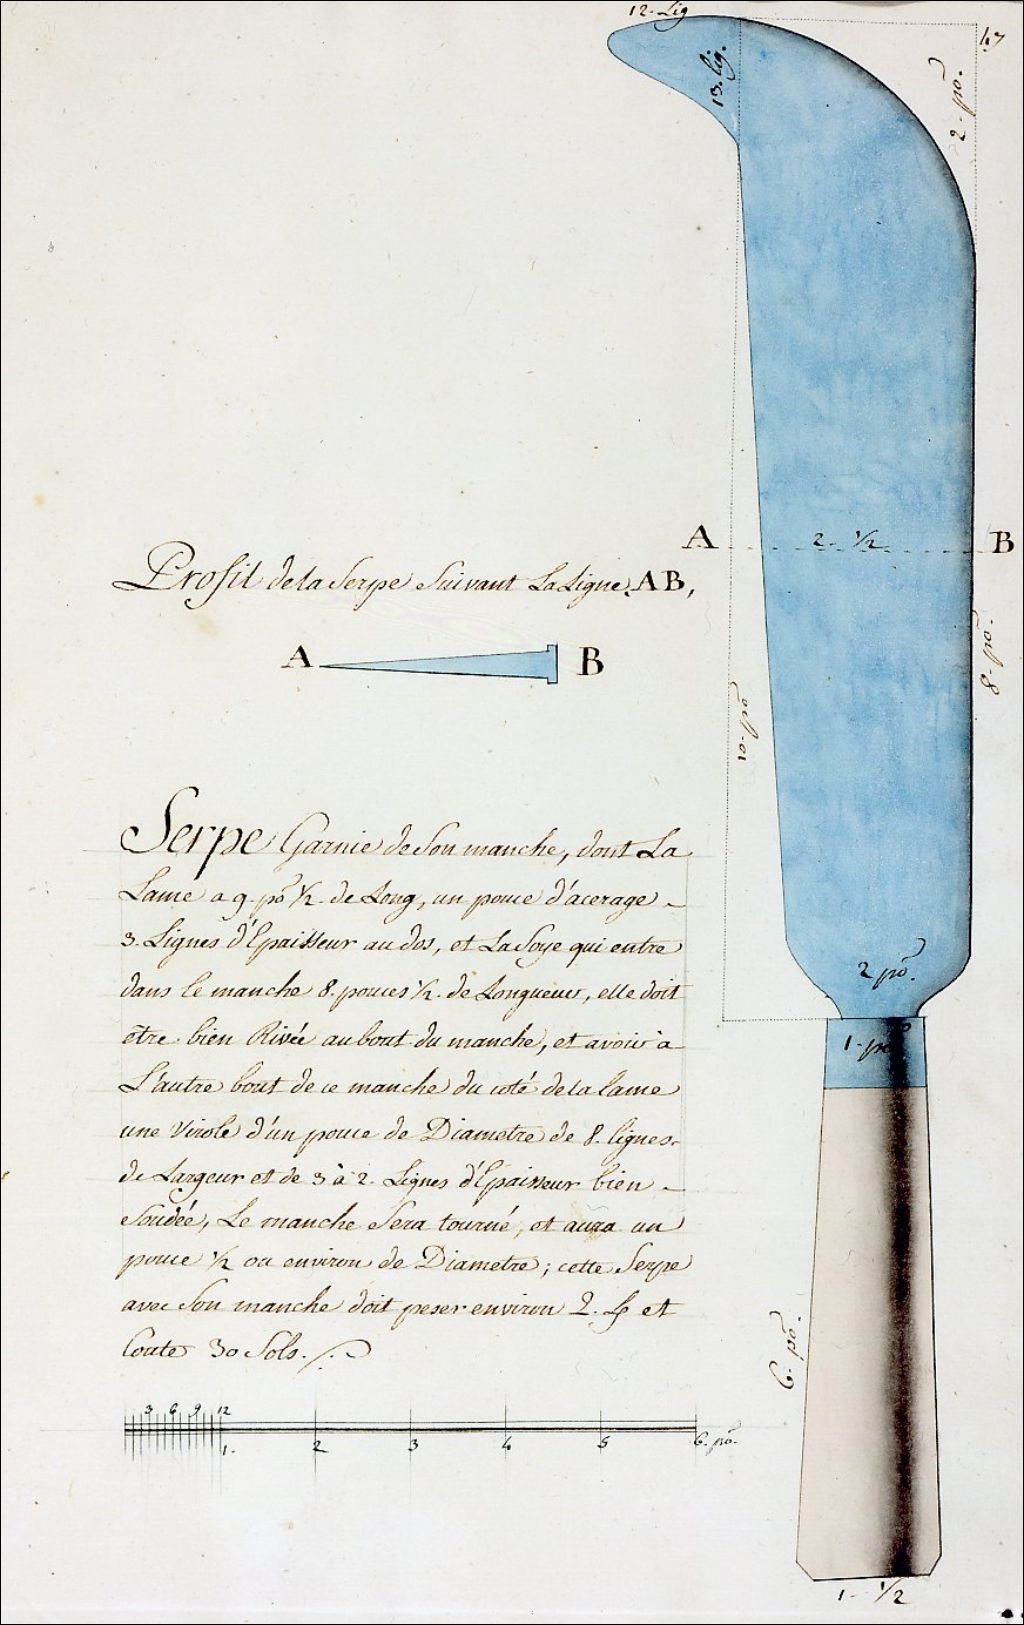 12. Lig
47
13. lig.
2. po.
A
2. 1/2
B
Profil de la Serpe Suivant La Ligne. AB,
A
B
8. po.
10. po.
Serpe Garnie de Son manche, dont La
Lame a 9. po 1/2. de Long, un pouce d'acerage -
3. Lignes d'Epaisseur au dos, et La Soye qui entre
dans le manche 8. pouces 1/2. de Longueur, elle doit
etre bien Rivée au bout du manche, et avoir à
L'autre bout de ce manche du coté de la lame
une Virole d'un pouce de Diametre de 8. lignes.
de Largeur et de 3 à 2. Lignes d'Epaisseur bien -
Soudée, Le manche Sera tourné, et aura un
pouce 1/2 ou environ de Diametre; cette Serpe
avec Son manche doit peser environ 2. et
Coute 30 Sols.
2 po.
1. po
6. po.
3 6 9 12
1. 2 3 4 5 6. po.
1. 1/2